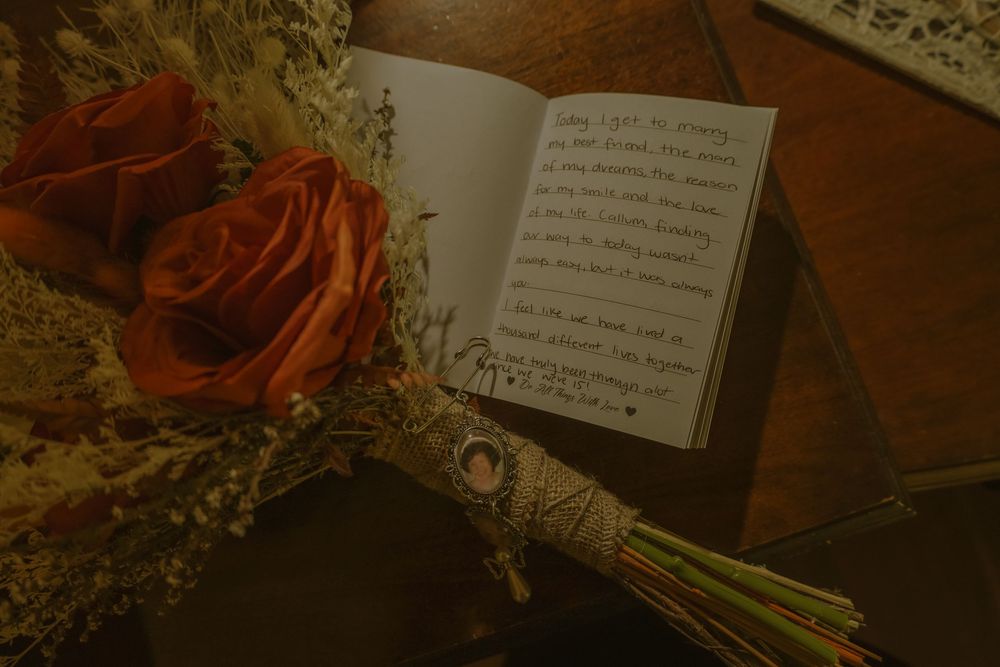 Today I get to marry
my best friend, the man
of my dreams, the reason
for my smile and the love
of my life. Callum, finding
our way to today wasn't
always easy, but it was always
you.
I feel like we have lived a
thousand different lives together
since we were 15!
we have truly been through alot
Do All Things With Love